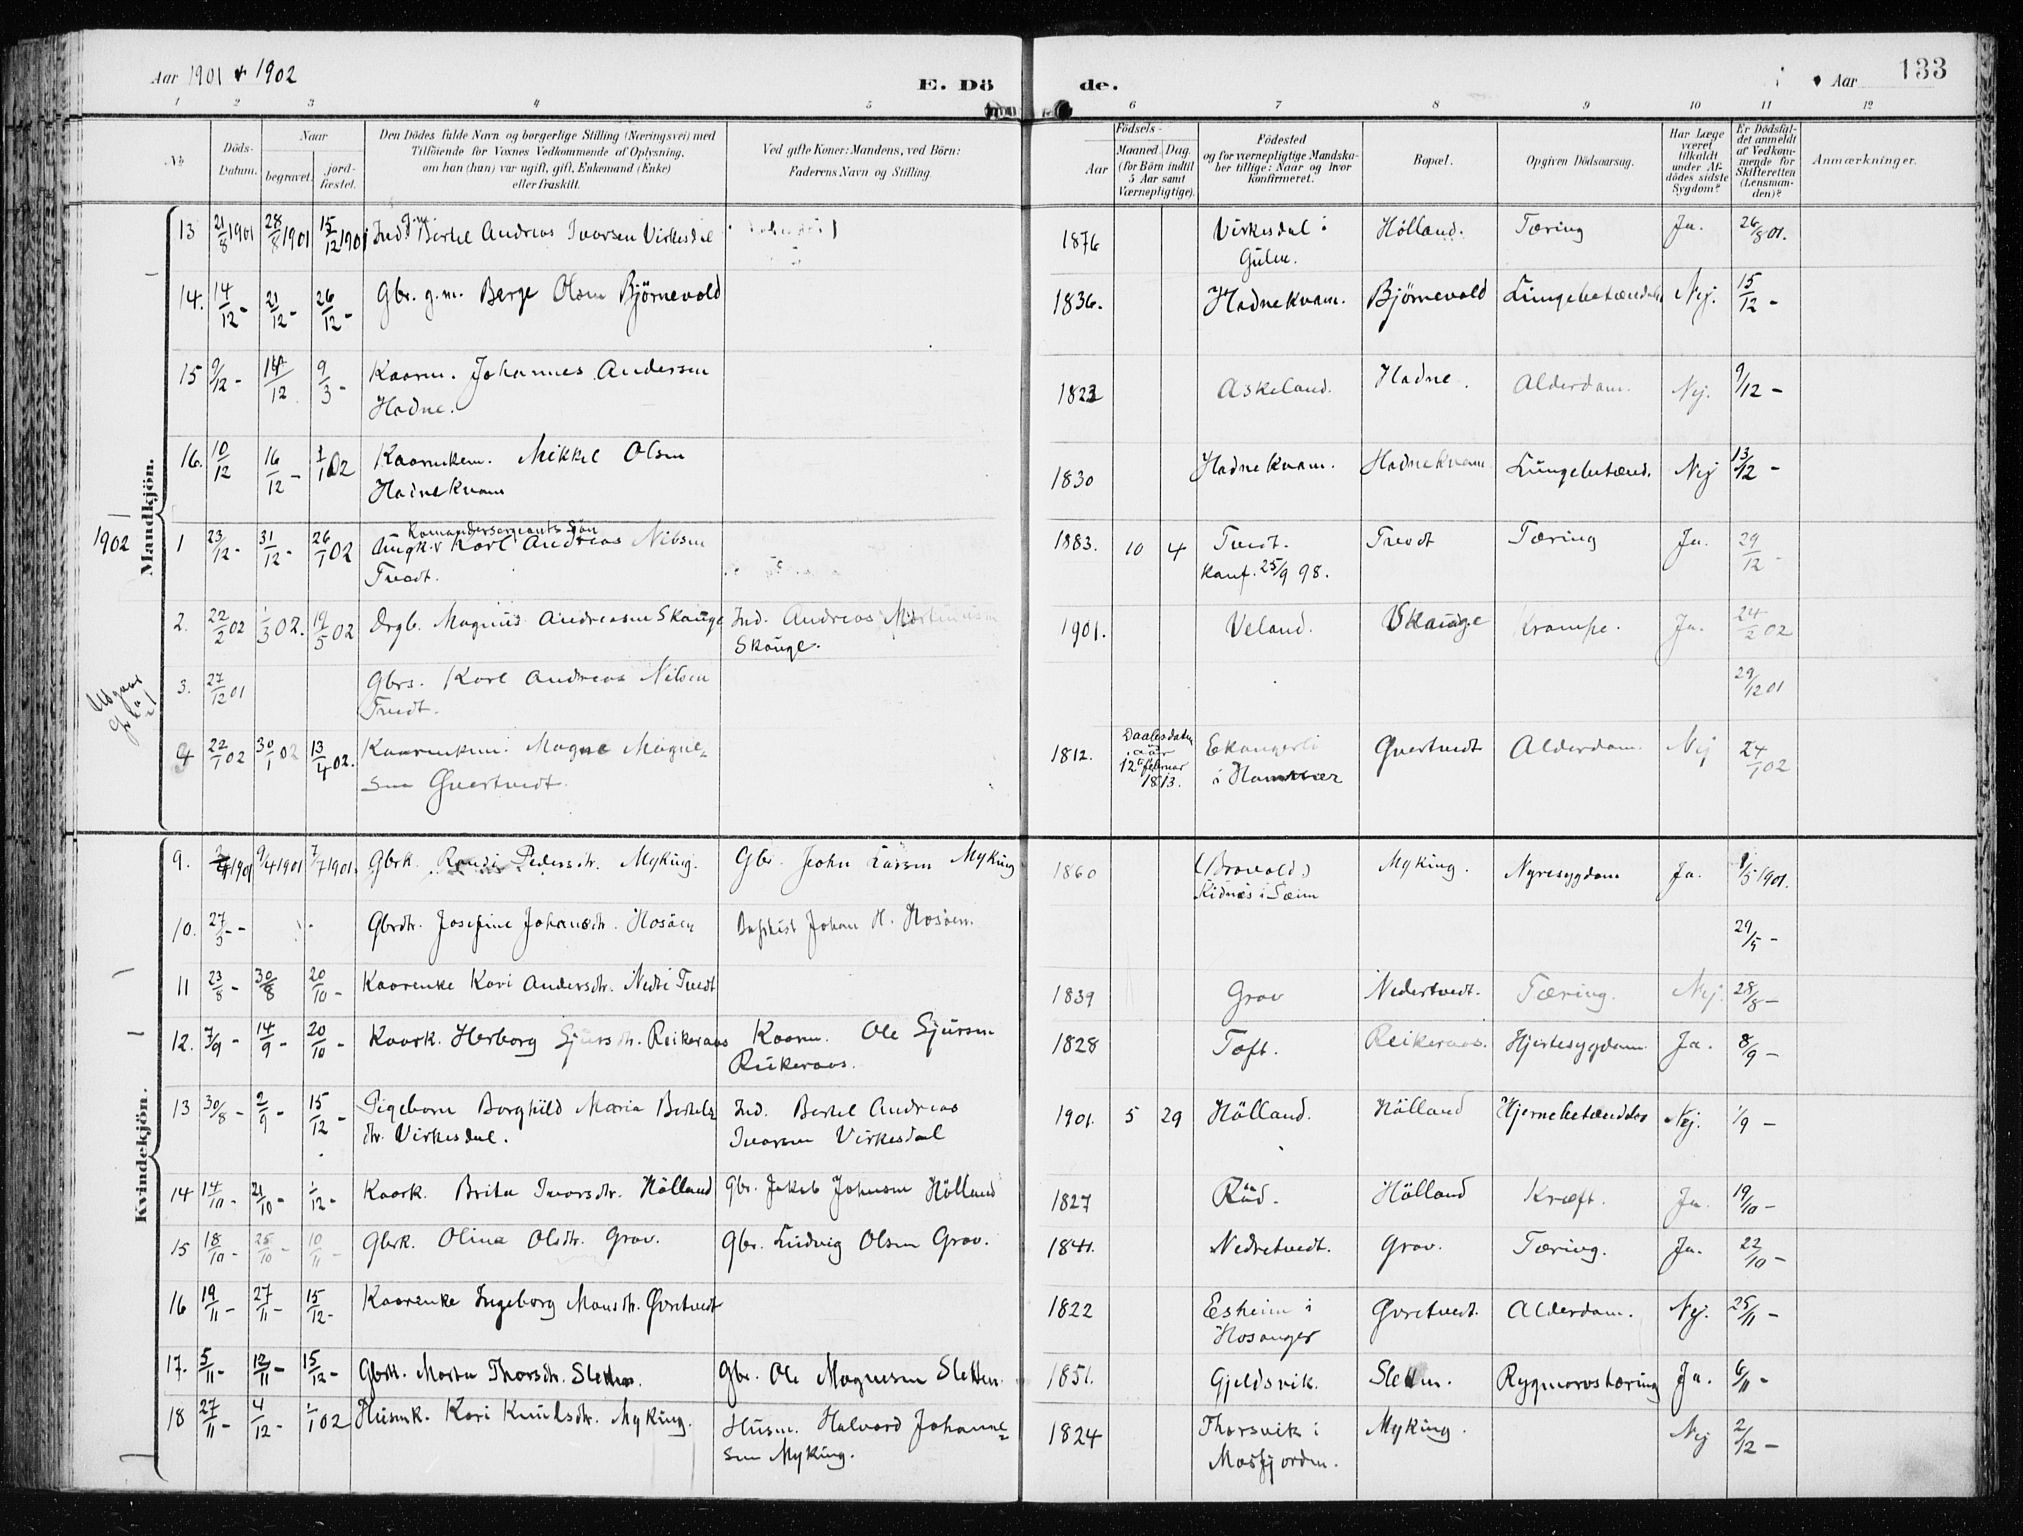 Aar 1901 & 1902
E. Dö de.
Aar 133
1 2 3 4 5 6 7 8 9 10 11 12
No
Döds-Datum.
Naar
begravet.
jord-fæstet.
Den Dödes fulde Navn og borgerlige Stilling (Næringsvei) med
Tilföiende for Voxnes Vedkommende af Oplysning,
om han (hun) var ugift, gift, Enkemand (Enke)
eller fraskilt.
Ved gifte Koner: Mandens, ved Börn:
Faderens Navn og Stilling.
Födsels-
Aar
Maaned. Dag.
(for Börn indtil
5 Aar samt
Værnepligtige).
Födested
og for værnepligtige Mandska-
ber tillige: Naar og hvor
konfirmeret.
Bopæl.
Opgiven Dödsaarsag.
Har Læge
været
tilkaldt
under Af-
dödes sidste
Sygdom?
Er Dödsfal-
det anmeldt
af Vedkom-
mende for
Skifteretten
(Lensman-
den)?
Anmærkninger.
Mandkjön.
13 21/8 1901 28/8 1901 15/12 1901 Ind. g.m. Bertel Andreas Ivarsen Virkesdal 1876 Virkesdal i Hölland. Tæring Ja. 26/8 01.
Gulen.
14. 14/12 - 21/12 - 26/12 - Gbr. g.m. Berge Olsen Björnevold 1836. Hadnekvam. Björnevold Lungebetændelse Nej. 15/12 -
15 9/12 - 14/12 9/3 - Kaarm. Johannes Andersen 1823 Askeland. Hadne. Alderdom. Nej. 9/12 -
Hadne.
16. 10/12 16/12 - 1/1 02 Kaarenkem. Mikkel Olsen 1830 Hadnekvam. Hadnekvam Lungebetænd. Nej 13/12 -
Hadnekvam
1902
Komandersergeants Sön
1 23/12 - 31/12 - 26/1 02 Ungk. Karl Andreas Nilsen 1883. 10 4 Tvedt. Tvedt Tæring Ja. 29/12 -
Tvedt. Konf. 25/9 98.
2. 22/2 02 1/3 02. 19/5 02 Drgb. Magnus Andreasen Skauge Ind. Andreas Martinusen 1901. Veland. Skauge Krampe. Ja. 24/2 02
Skauge.
3. 27/12 01 Gbrs. Karl Andreas Nilsen 29/12 01
Tvedt.
4 22/1 02 30/1 02 13/4 02. Kaarenkem. Magne Magne- 1812. Daabsdaten Ekangerli Qvertvedt Alderdom. Nej 24/1 02
sen Qvertvedt. er 12te februar 1813. i Hammer
Kvindekjön.
9. 1901 9/4 1901 7/7 1901. Gbrk. Randi Pedersdtr. Myking. Gbr. John Larsen Myking 1860 (Bravold) Myking. Nyresygdom Ja. 1/5 1901.
Kidnæs i Sæim
10. 27/5 - - Gbrdtr. Josefine Johansdtr. Hosöen Baptist Johan H. Hosöen. 29/5 -
11 23/8 - 30/8 20/10 - Kaarenke Kari Andersdtr. Nedre Tvedt 1839 Grov Nedertvedt. Tæring. Nej. 28/8 -
12. 7/9 - 14/9 - 20/10 - Kaark. Herborg Sjursdtr. Reikeraas Kaarm. Ole Sjursen 1828 Toft. Reikeraas. Hjertesygdom Ja. 8/9 -
Reikeraas.
13 30/8 - 2/9 - 15/12 - Pigebarn Borghild Maria Bertels- Ind. Bertel Andreas 1901. 5 29 Hölland. Hölland Hjernebetændelse Nej. 1/9 -
dtr. Virkesdal. Ivarsen Virkesdal
14 14/10 - 21/10 - 1/12 - Kaark. Brita Ivarsdtr. Hölland Gbr. Jakob Johnsen Hölland 1827 Raad. Hölland Kræft. Ja. 19/10 -
15 18/10 - 25/10 - 10/11 - Gbrk. Olina Olsdtr. Grov. Gbr. Ludvig Olsen Grov. 1841. Nedretvedt. Grov. Tæring. Ja. 22/10 -
16 19/11 - 27/11 - 15/12 - Kaarenke Ingeborg Monsdtr. Qvretvedt 1822 Esheim i Qvretvedt. Alderdom. Nej. 25/11 -
Hosanger
17. 5/11 - 12/11 - 15/12 - Gbrk. Marta Thorsdtr. Sletten. Gbr. Ole Magnesen Sletten. 1851. Gjeldsvik. Sletten. Rygmarvstæring Ja. 6/11 -
18 27/11 - 4/12 - 1/1 02 Husmk. Kari Knudsdtr. Myking. Husm. Halvard Johanne- 1824 Thorsvik i Myking. Nej 2/12 -
sen Myking. Masfjorden.